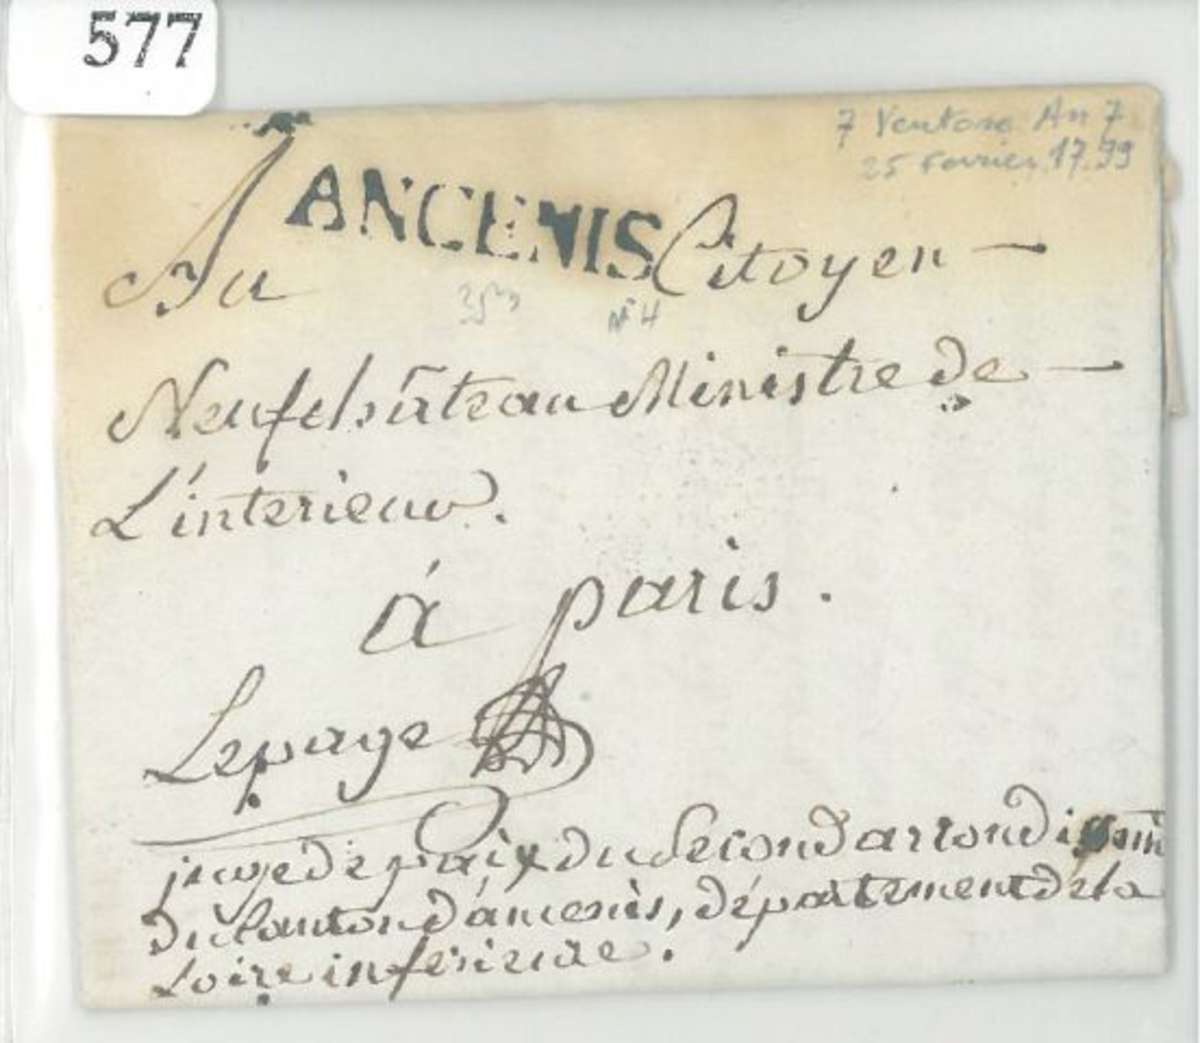 577
7 Ventose An 7
25 Fevrier 1799
ANCENIS
Au Citoyen
35 N° 4
Neufchâteau Ministre de
L'interieur.
á paris.
Lepage
juge de paix du Second arrondissem
du Canton d'ancenis, département de la
Loire inferieure.